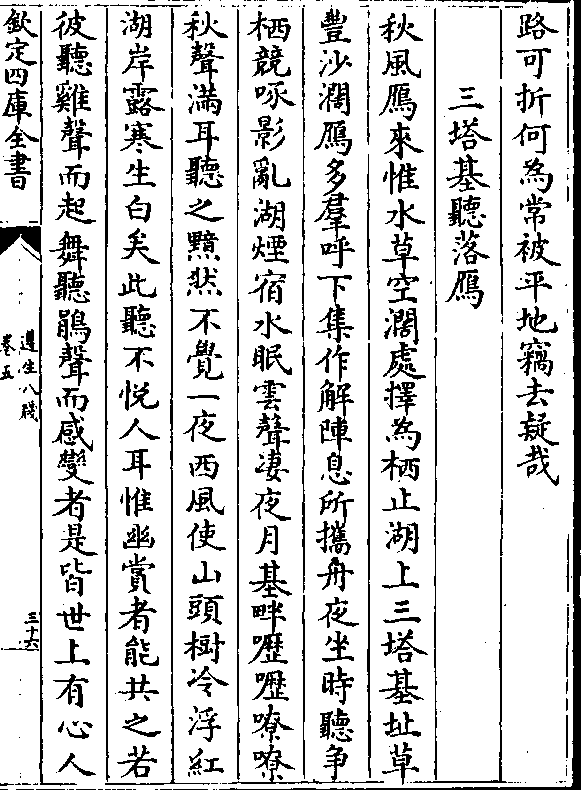 路可折何為常被平地竊去疑哉
三塔基聽落鴈
秋風鴈來惟水草空濶處擇為栖止湖上三塔基址草
豐沙濶鴈多羣呼下集作解陣息所攜舟夜坐時聽争
栖競啄影亂湖煙宿水眠雲聲凄夜月基畔嚦嚦嘹嘹
秋聲滿耳聽之黯然不覺一夜西風使山頭樹冷浮紅
湖岸露寒生白矣此聽不悦人耳惟幽賞者能共之若
彼聽雞聲而起舞聽鵑聲而感變者是皆世上有心人
欽定四庫全書
遵生八牋
卷五
三十六